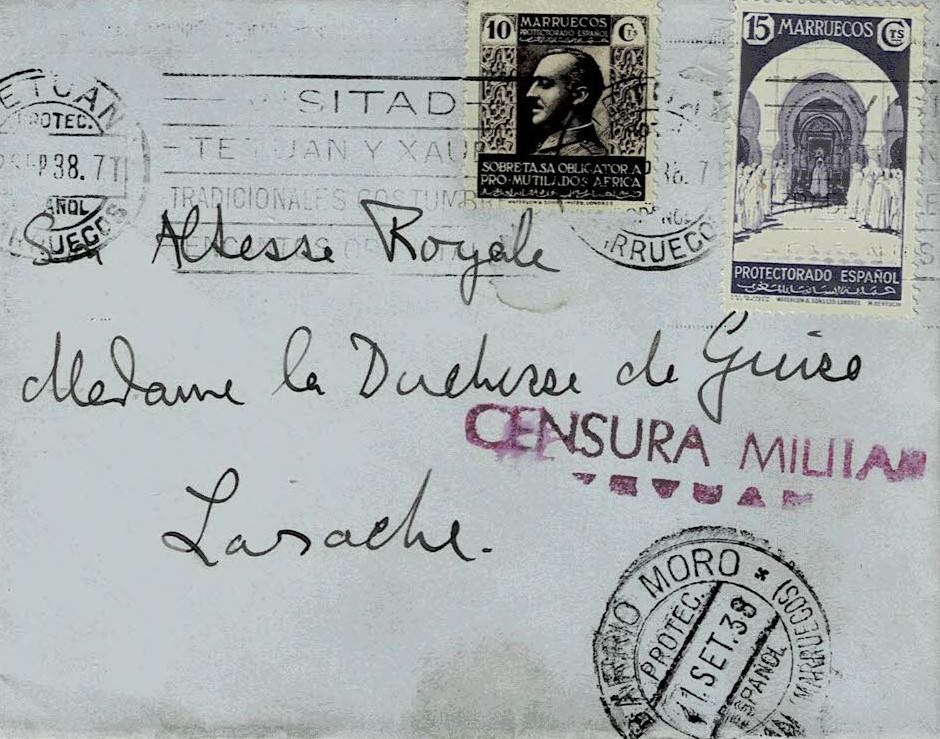 10 MARRUECOS CTS
PROTECTORADO ESPAÑOL
SOBRETASA OBLIGATORIA
PRO-MUTILADOS AFRICA
15 MARRUECOS CTS
PROTECTORADO ESPAÑOL
TETUAN
PROTEC.
38.7
AÑOL
RRUECOS
VISITAD
TETUAN Y XAU
TRADICIONALES COSTUMB
38.7
RRUECO
Son Altesse Royale
Madame la Duchesse de Guise
CENSURA MILITAR
TETUAN
Larache.
BARRIO MORO
PROTEC.
1.SET.38
ESPAÑOL
(MARRUECOS)